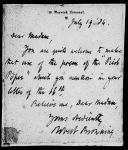 19 Warwick Crescent.
July 19. '84.
Dear Madam,
You are quite welcome to make
that use of the poem of the "Pied
Piper" which you mention in your
letter of the 16th
Believe me, dear Madam,
Yours obediently
Robert Browning